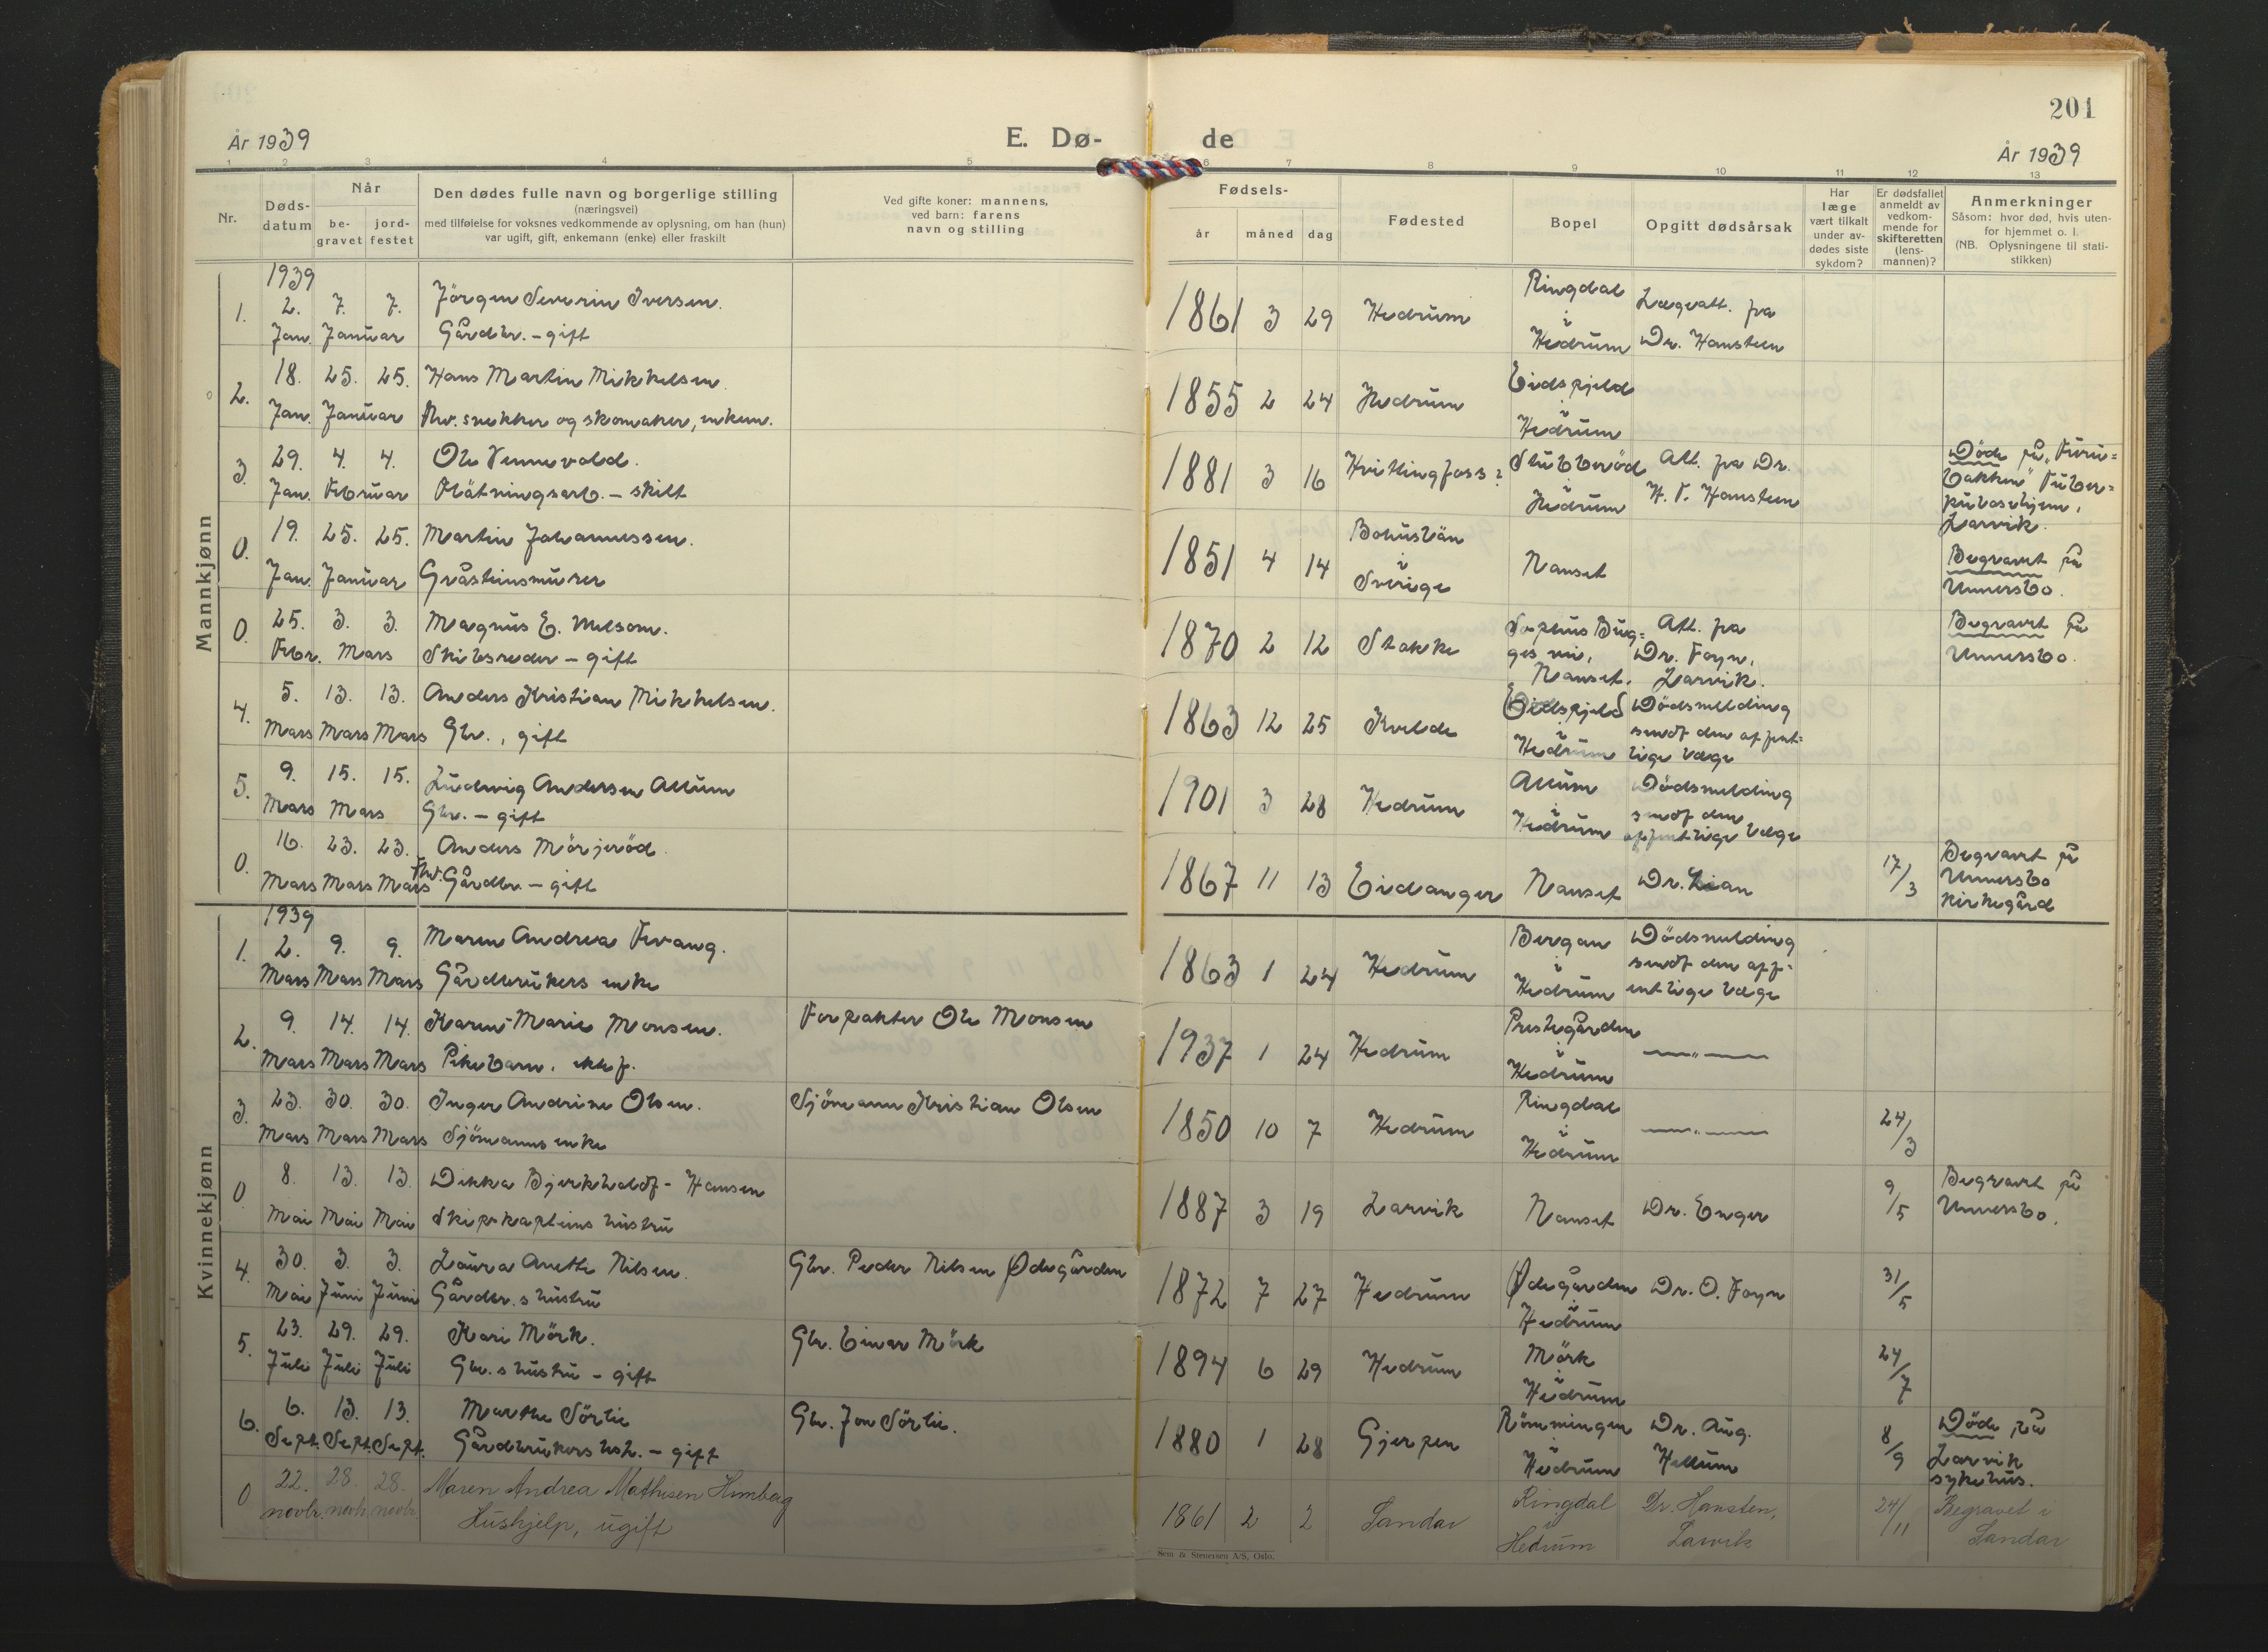 201
År 1939
E. Dø-
de
År 1939
1 2 3 4 5 6 7 8 9 10 11 12 13
Nr.
Døds-
datum
Når
be-
gravet
jord-
festet
Den dødes fulle navn og borgerlige stilling
(næringsvei)
med tilføielse for voksnes vedkommende av oplysning, om han (hun)
var ugift, gift, enkemann (enke) eller fraskilt
Ved gifte koner: mannens,
ved barn: farens
navn og stilling
Fødsels-
år måned dag
Fødested
Bopel
Opgitt dødsårsak
Har
læge
vært tilkalt
under av-
dødes siste
sykdom?
Er dødsfallet
anmeldt av
vedkom-
mende for
skifteretten
(lens-
mannen)?
Anmerkninger
Såsom: hvor død, hvis uten-
for hjemmet o. l.
(NB. Oplysningene til stati-
stikken)
Mannkjønn
1939
1. 2. 7. 7. Jörgen Severin Iversen.
Jan. Januar Gårdbr. - gift
1861 3 29 Hedrum
Ringdal
i
Hedrum
Lægeatt. fra
Dr. Hansteen
2. 18. 25. 25. Hans Martin Mikkelsen.
Jan. Januar Fhv. snekker og skomaker, enkem.
1855 2 24 Hedrum
Eidsfjeld
i
Hedrum
3. 29. 4. 4. Ole Vennevold.
Jan. Februar Fløtningsarb. - skilt
1881 3 16 Hvitlingfoss?
Stubberöd
i
Hedrum
Att. fra Dr.
H. F. Hansteen
Døde på "Furu=
bakken" Tuber=
kulosehjem,
Larvik.
0. 19. 25. 25. Martin Johannessen.
Jan. Januar Gråsteinsmurer
1851 4 14
Bohuslän
i
Sverige
Nanset
Begravet på
Undersbo.
0. 25. 3. 3. Magnus E. Melsom.
Febr. Mars Skibsreder - gift
1870 2 12 Stokke
Sophus Bug=
ges vei,
Nanset.
Att. fra
Dr. Foyn,
Larvik.
Begravet på
Undersbo.
4. 5. 13. 13. Anders Kristian Mikkelsen.
Mars Mars Mars Gbr., gift
1863 12 25 Kvelde
Eidsfjeld
i
Hedrum
Dödsmelding
sendt den offent=
lige læge
5. 9. 15. 15. Ludvig Andersen Allum
Mars Mars Gbr. - gift
1901 3 28 Hedrum
Allum
i
Hedrum
Dödsmelding
sendt den
offentlige læge
0. 16. 23. 23. Anders Mörjeröd
Mars Mars Mars Fhv. Gårdbr - gift
1867 11 13 Eidanger Nanset Dr. Lian
17/3
Begravet på
Undersbo
kirkegård
Kvinnekjønn
1939
1. 2. 9. 9. Maren Andrea Fevang.
Mars Mars Mars Gårdbrukers enke
1863 1 24 Hedrum
Bergan
i
Hedrum
Dödsmelding
sendt den off-
entlige læge
2. 9. 14. 14. Karen-Marie Monsen.
Mars Mars Mars Pikebarn, ektef.
Forpakter Ole Monsen
1937 1 24 Hedrum
Prestegården
i
Hedrum
—"—
3. 23. 30. 30. Inger Andrine Olsen.
Mars Mars Mars Sjömanns enke
Sjömann Kristian Olsen
1850 10 7 Hedrum
Ringdal
i
Hedrum
—"—
24/3
0 8. 13. 13. Dikka Bjerkholdt-Hansen
Mai Mai Mai Skipskapteins hustru
1887 3 19 Larvik Nanset Dr. Enger
9/5
Begravet på
Undersbo.
4. 30. 3. 3. Laura Anette Nilsen.
Mai Juni Juni Gårdbr.s hustru
Gbr. Peder Nilsen Ødegården
1872 7 27 Hedrum
Ødegården
i
Hedrum
Dr. O. Foyn
31/5
5. 23. 29. 29. Kari Mörk.
Juli Juli Juli Gbr.s hustru - gift
Gbr. Einar Mörk
1894 6 29 Hedrum
Mörk
i
Hedrum
24/7
6. 6. 13. 13. Marthe Sörlie
Sept. Sept. Sept. Gårdbrukers hst. - gift
Gbr. Jon Sörlie.
1880 1 28 Gjerpen
Römmingen
i
Hedrum
Dr. Aug.
Hellum
8/9
Döde på
Larvik
sykehus.
0 22. 28. 28. Maren Andrea Mathisen Himberg
novbr. novbr. novbr. Hushjelp, ugift
1861 2 2 Sandar
Ringdal
i
Hedrum
Dr. Hansten,
Larvik
24/11
Begravet i
Sandar
Sem & Stenersen A/S, Oslo.